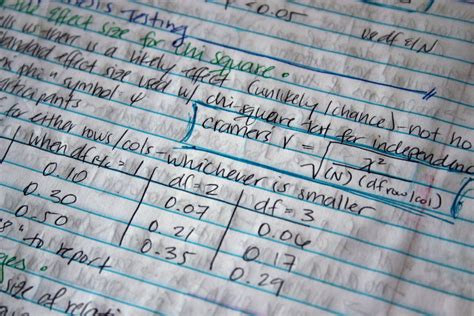 sis testing P < 0.05
effect size for chi square. use df & N
is there is a likely effect (unlikely / chance) - not
standard effect size used w/ chi-square test for independence
"phi" symbol = φ
participants
cramers V = √ x² / (N) (df row/col)
for either rows/cols - whichever is smaller
when df = 1 df = 2 df = 3
0.10 0.07 0.06
0.30 0.21 0.17
0.50 0.35 0.29
to report
size of